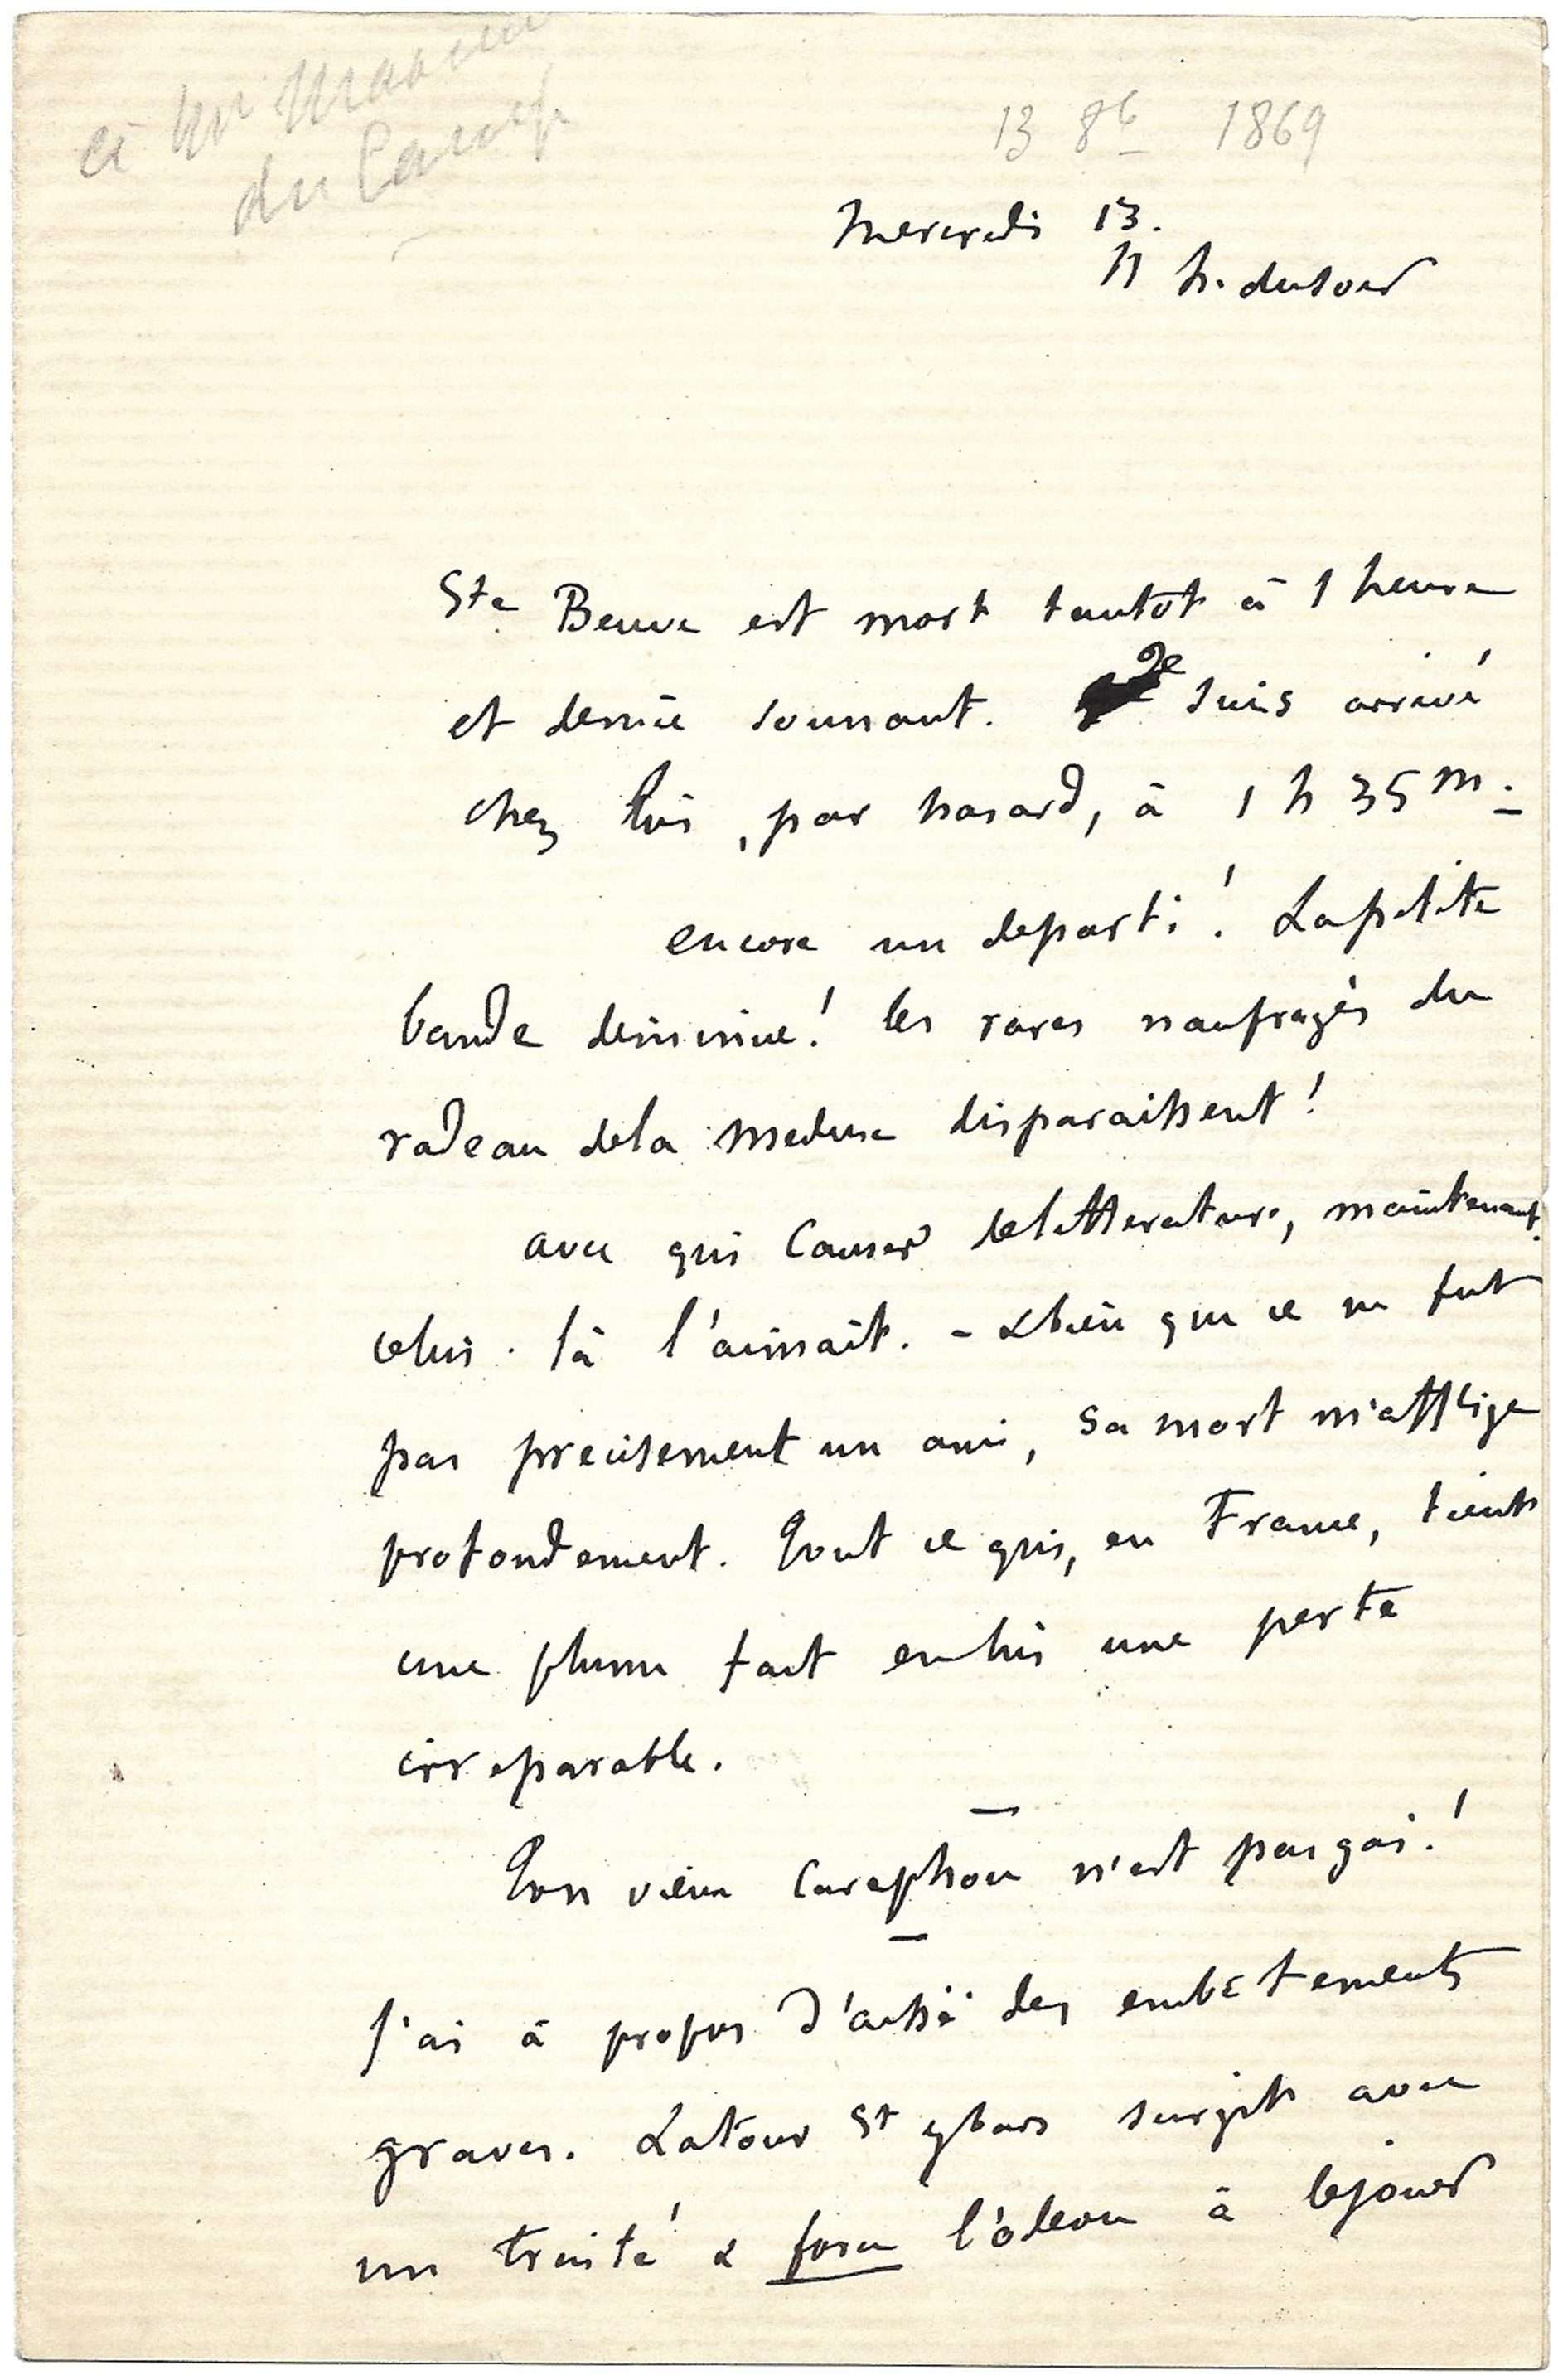 à Mr Maxime
du Camp
13 8b 1869
Mercredi 13.
11 h. du soir
Ste Beuve est mort tantôt à 1 heure
et demie sonnant. Je suis arrivé
chez lui, par hasard, à 1 h 35 m.
encore un departi! La petite
bande diminue! les rares naufragés du
radeau de la Meduse disparaissent!
avec qui Causer de litterature, maintenant.
celui-là l'aimait. - & bien que ce ne fut
pas precisement un ami, sa mort m'afflige
profondement. Tout ce qui, en France, tient
une plume fait en lui une perte
irreparable.
Ton vieux Caraphon n'est pas gai!
J'ai à propos d'aïssé des embêtements
graves. Latour St ybars surgit avec
un traité & force l'odeon à le jouer